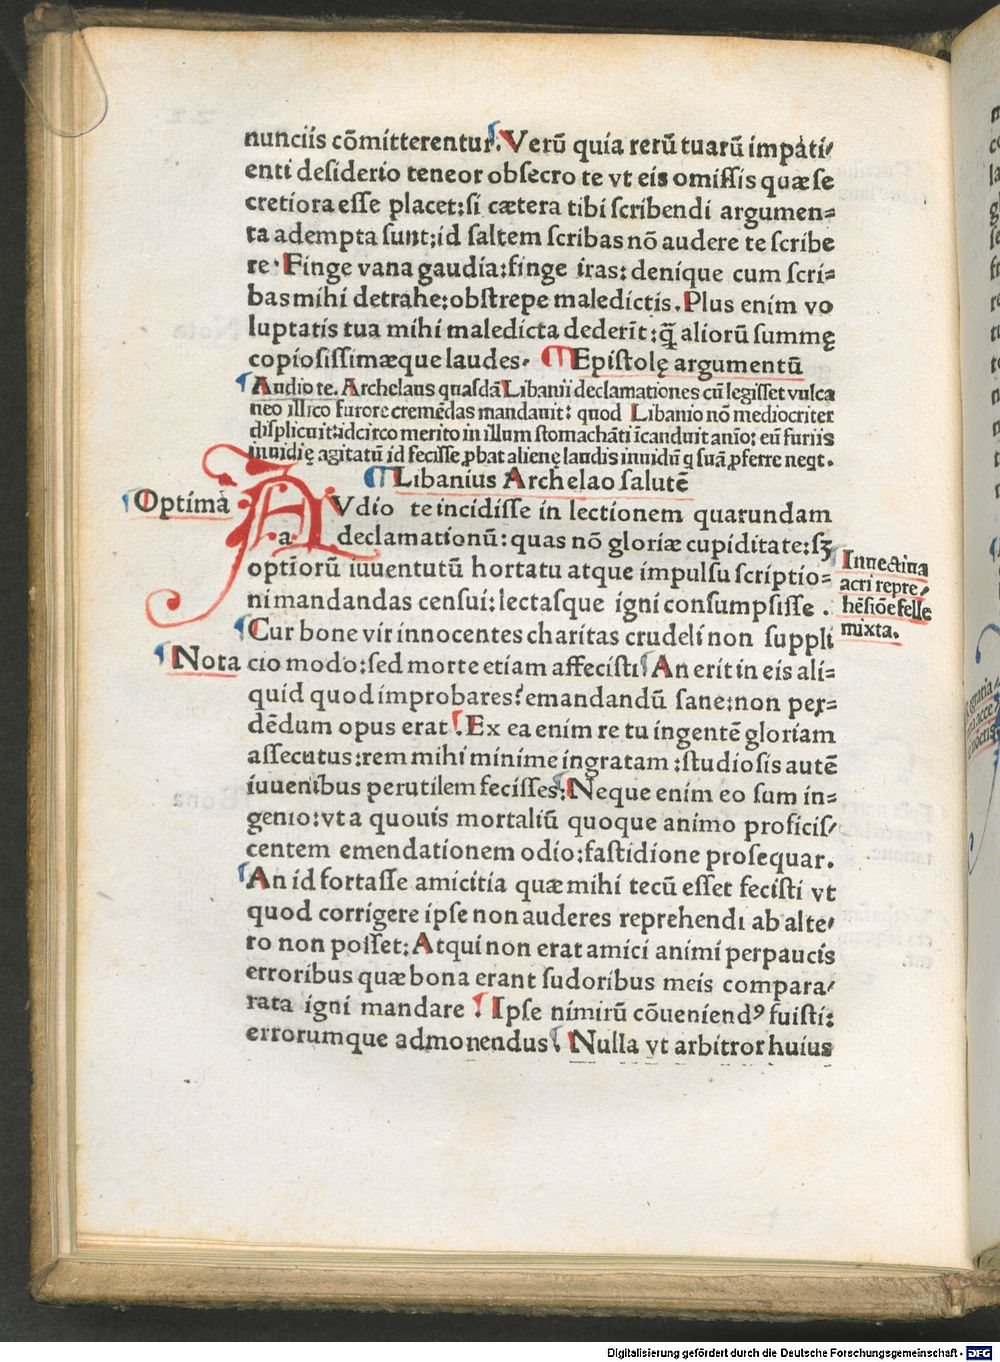 nunciis cōmitterentur. Verū quia rerū tuarū impati/
enti desiderio teneor obsecro te vt eis omissis quæ se
cretiora esse placet:si cætera tibi scribendi argumen=
ta adempta sunt:id saltem scribas nō audere te scribe
re. Finge vana gaudia:finge iras:denique cum scri=
bas mihi detrahe:obstrepe maledictis. Plus enim vo
luptatis tua mihi maledicta dederīt:q̄ aliorū summę
copiosissimæque laudes. Epistolę argumentū
Audio te. Archelaus quasdā Libanii declamationes cū legisset vulca
neo illico furore cremēdas mandauit: quod Libanio nō mediocriter
displicuit:idcirco merito in illum stomachāti īcanduit anīo: eū furiis
inuidię agitatū id fecisse ꝓbat alienę laudis inuidū q suā ꝓferre neqt.
Libanius Archelao salutē
Optima
AVdio te incidisse in lectionem quarundam
a declamationū: quas nō gloriæ cupiditate:sꝫ
optiorū iuuentutū hortatu atque impulsu scriptio=
ni mandandas censui:lectasque igni consumpsisse .
Inuectiua
acri repre/
hēsiōe felle
mixta.
Cur bone vir innocentes charitas crudeli non suppli
Nota
cio modo:sed morte etiam affecisti. An erit in eis ali=
quid quod improbares? emandandū sane:non per=
dēdum opus erat. Ex ea enim re tu ingentē gloriam
assecutus:rem mihi minime ingratam :studiosis autē
iuuenibus perutilem fecisses. Neque enim eo sum in=
genio:vt a quouis mortaliū quoque animo proficis/
centem emendationem odio:fastidione prosequar.
An id fortasse amicitia quæ mihi tecū esset fecisti vt
quod corrigere ipse non auderes reprehendi ab alte/
ro non posset: Atqui non erat amici animi perpaucis
erroribus quæ bona erant sudoribus meis compara/
rata igni mandare ? Ipse nimirū cōueniendꝰ fuisti:
errorumque admonendus. Nulla vt arbitror huius
Digitalisierung gefördert durch die Deutsche Forschungsgemeinschaft - DFG